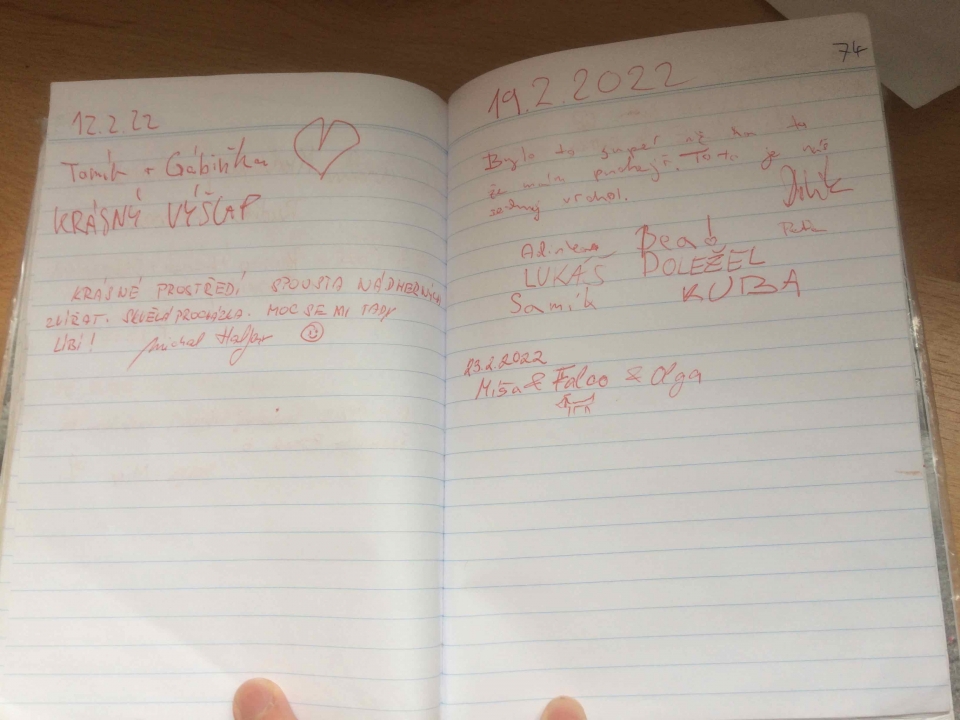 12.2.22
Tomík + Gábinka
KRÁSNÝ VÝŠLAP
KRÁSNÉ PROSTŘEDÍ SPOUSTA NÁDHERNÝCH
ZVÍŘAT. SKVĚLÁ PROCHÁZKA. MOC SE MI TADY
LÍBÍ! Michal
74
19.2.2022
Bylo to super až na to
že mám puchejř. Toto je náš
sedmý vrchol.
Adinka Bea!
LUKÁŠ DOLEŽEL
Samík KUBA
23.2.2022
Míša & Falco & Olga